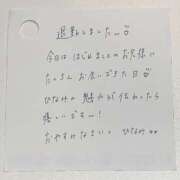 退勤しました
今日ははじめましてのお兄様に
たくさんお会いできた日
ひなみの魅力が伝わったら
嬉しいです〜!
おやすみなさい ひなみ